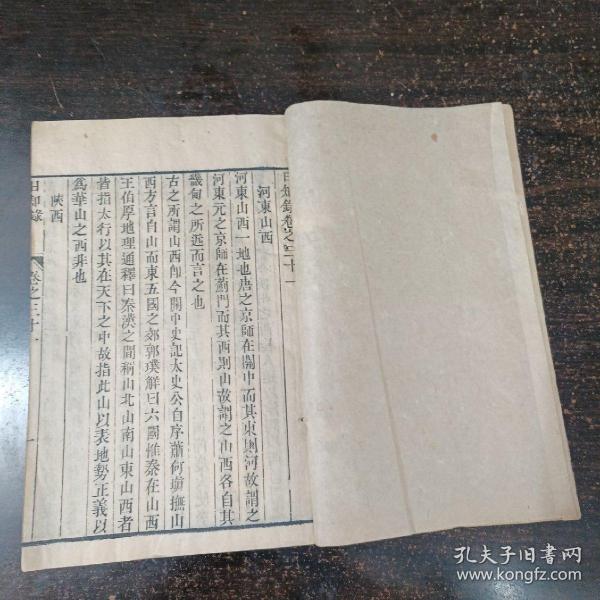 日知錄卷之三十一
河東山西
河東山西一地也唐之京師在關中而其東則河故謂之
河東元之京師在薊門而其西則山故謂之山西各自其
畿甸之所近而言之也
古之所謂山西即今關中史記太史公自序蕭何填撫山
西方言自山而東五國之郊郭璞解曰六國惟秦在山西
王伯厚地理通釋曰秦漢之間稱山北山南山東山西者
皆指太行以其在天下之中故指此山以表地勢正義以
爲華山之西非也
陝西
日知錄 卷之三十一 一
孔夫子旧书网
www.kongfz.com